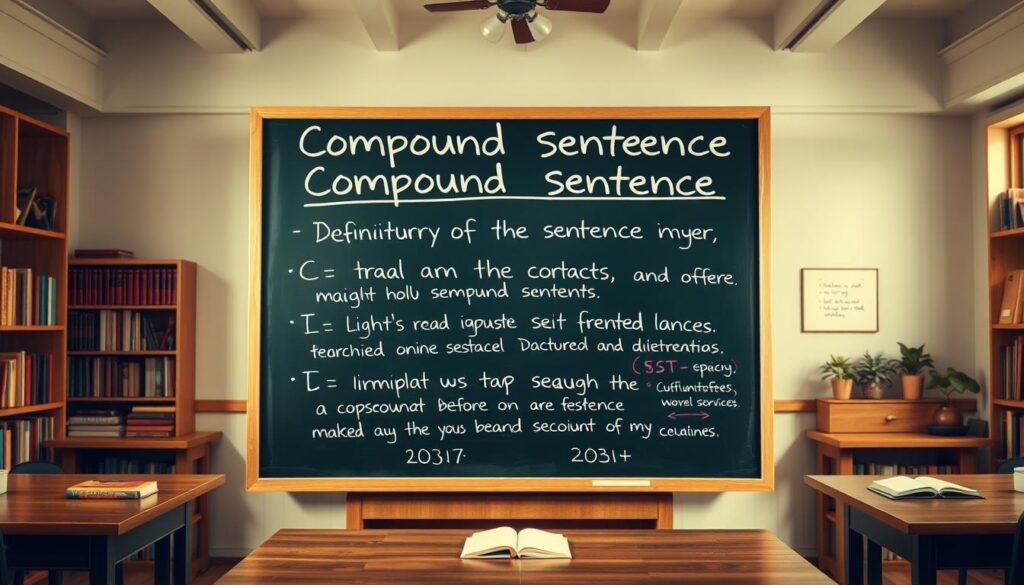 Compound Senteence
Compound Sentence
- Definiiturry of the sentence inyer,
· C = traal am the cortacts, and offere.
maight holu sempund sentents.
· I = Light's read iqpuste seit frented lances.
tearchied onine sestacel Dactured and dietrentias.
(SST - epiacry)
· I = iimmiplat ws tap seaugh the
• Cuffiuntoftes,
a copscounat before on are festence
wovel services.
maked ay the yous beand secount of my ceuaines.
20317· 2031+